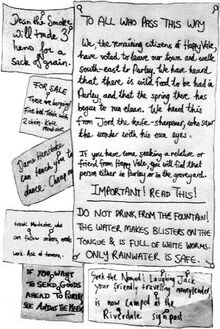 Dear Pig Smoker,
will trade 3
hens for a
sack of grain.
FOR SALE
Three sleeping
chair. Kate
Dance Instructor
can teach you to
dance. Cheap
can follow orders, needs
work. Ask at tavern.
IF YOU WANT
TO SEND GOODS
AHEAD TO PURLEY
SEE ANDERS THE MULE
TO ALL WHO PASS THIS WAY
We, the remaining citizens of Happy Vale,
have voted to leave our town and walk
south-east to Purley. We have heard
that there is wild food to be had in
Purley, and that the spring there has
begun to run clean. We heard this
from Jord the knife-sharpener, who saw
the wonder with his own eyes.
If you come seeking a relative or
friend from Happy Vale, you will find that
person either in Purley or in the graveyard.
IMPORTANT! READ THIS!
DO NOT DRINK FROM THE FOUNTAIN!
THE WATER MAKES BLISTERS ON THE
TONGUE & IS FULL OF WHITE WORMS.
ONLY RAINWATER IS SAFE.
Seek the Nomad! Laughing Jack
your friendly travelling moneylender,
is now camped at the
Riverdale signpost